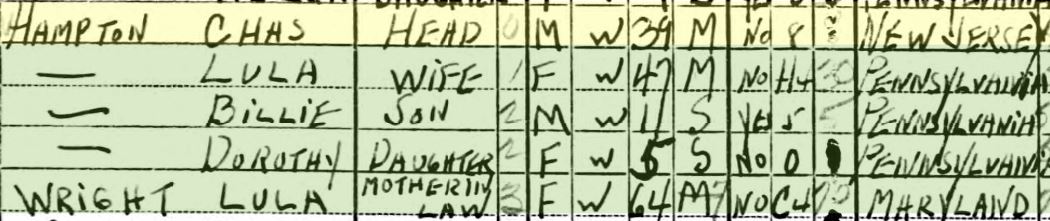 HAMPTON CHAS HEAD 0 M W 39 M No 8 NEW JERSEY
— LULA WIFE 1 F W 47 M NO H4 30 PENNSYLVANIA
— BILLIE SON 2 M W 11 S YES 5 5 PENNSYLVANIA
— DOROTHY DAUGHTER 2 F W 5 S NO 0 PENNSYLVANIA
WRIGHT LULA MOTHER IN LAW 3 F W 64 M 7 NO C4 MARYLAND